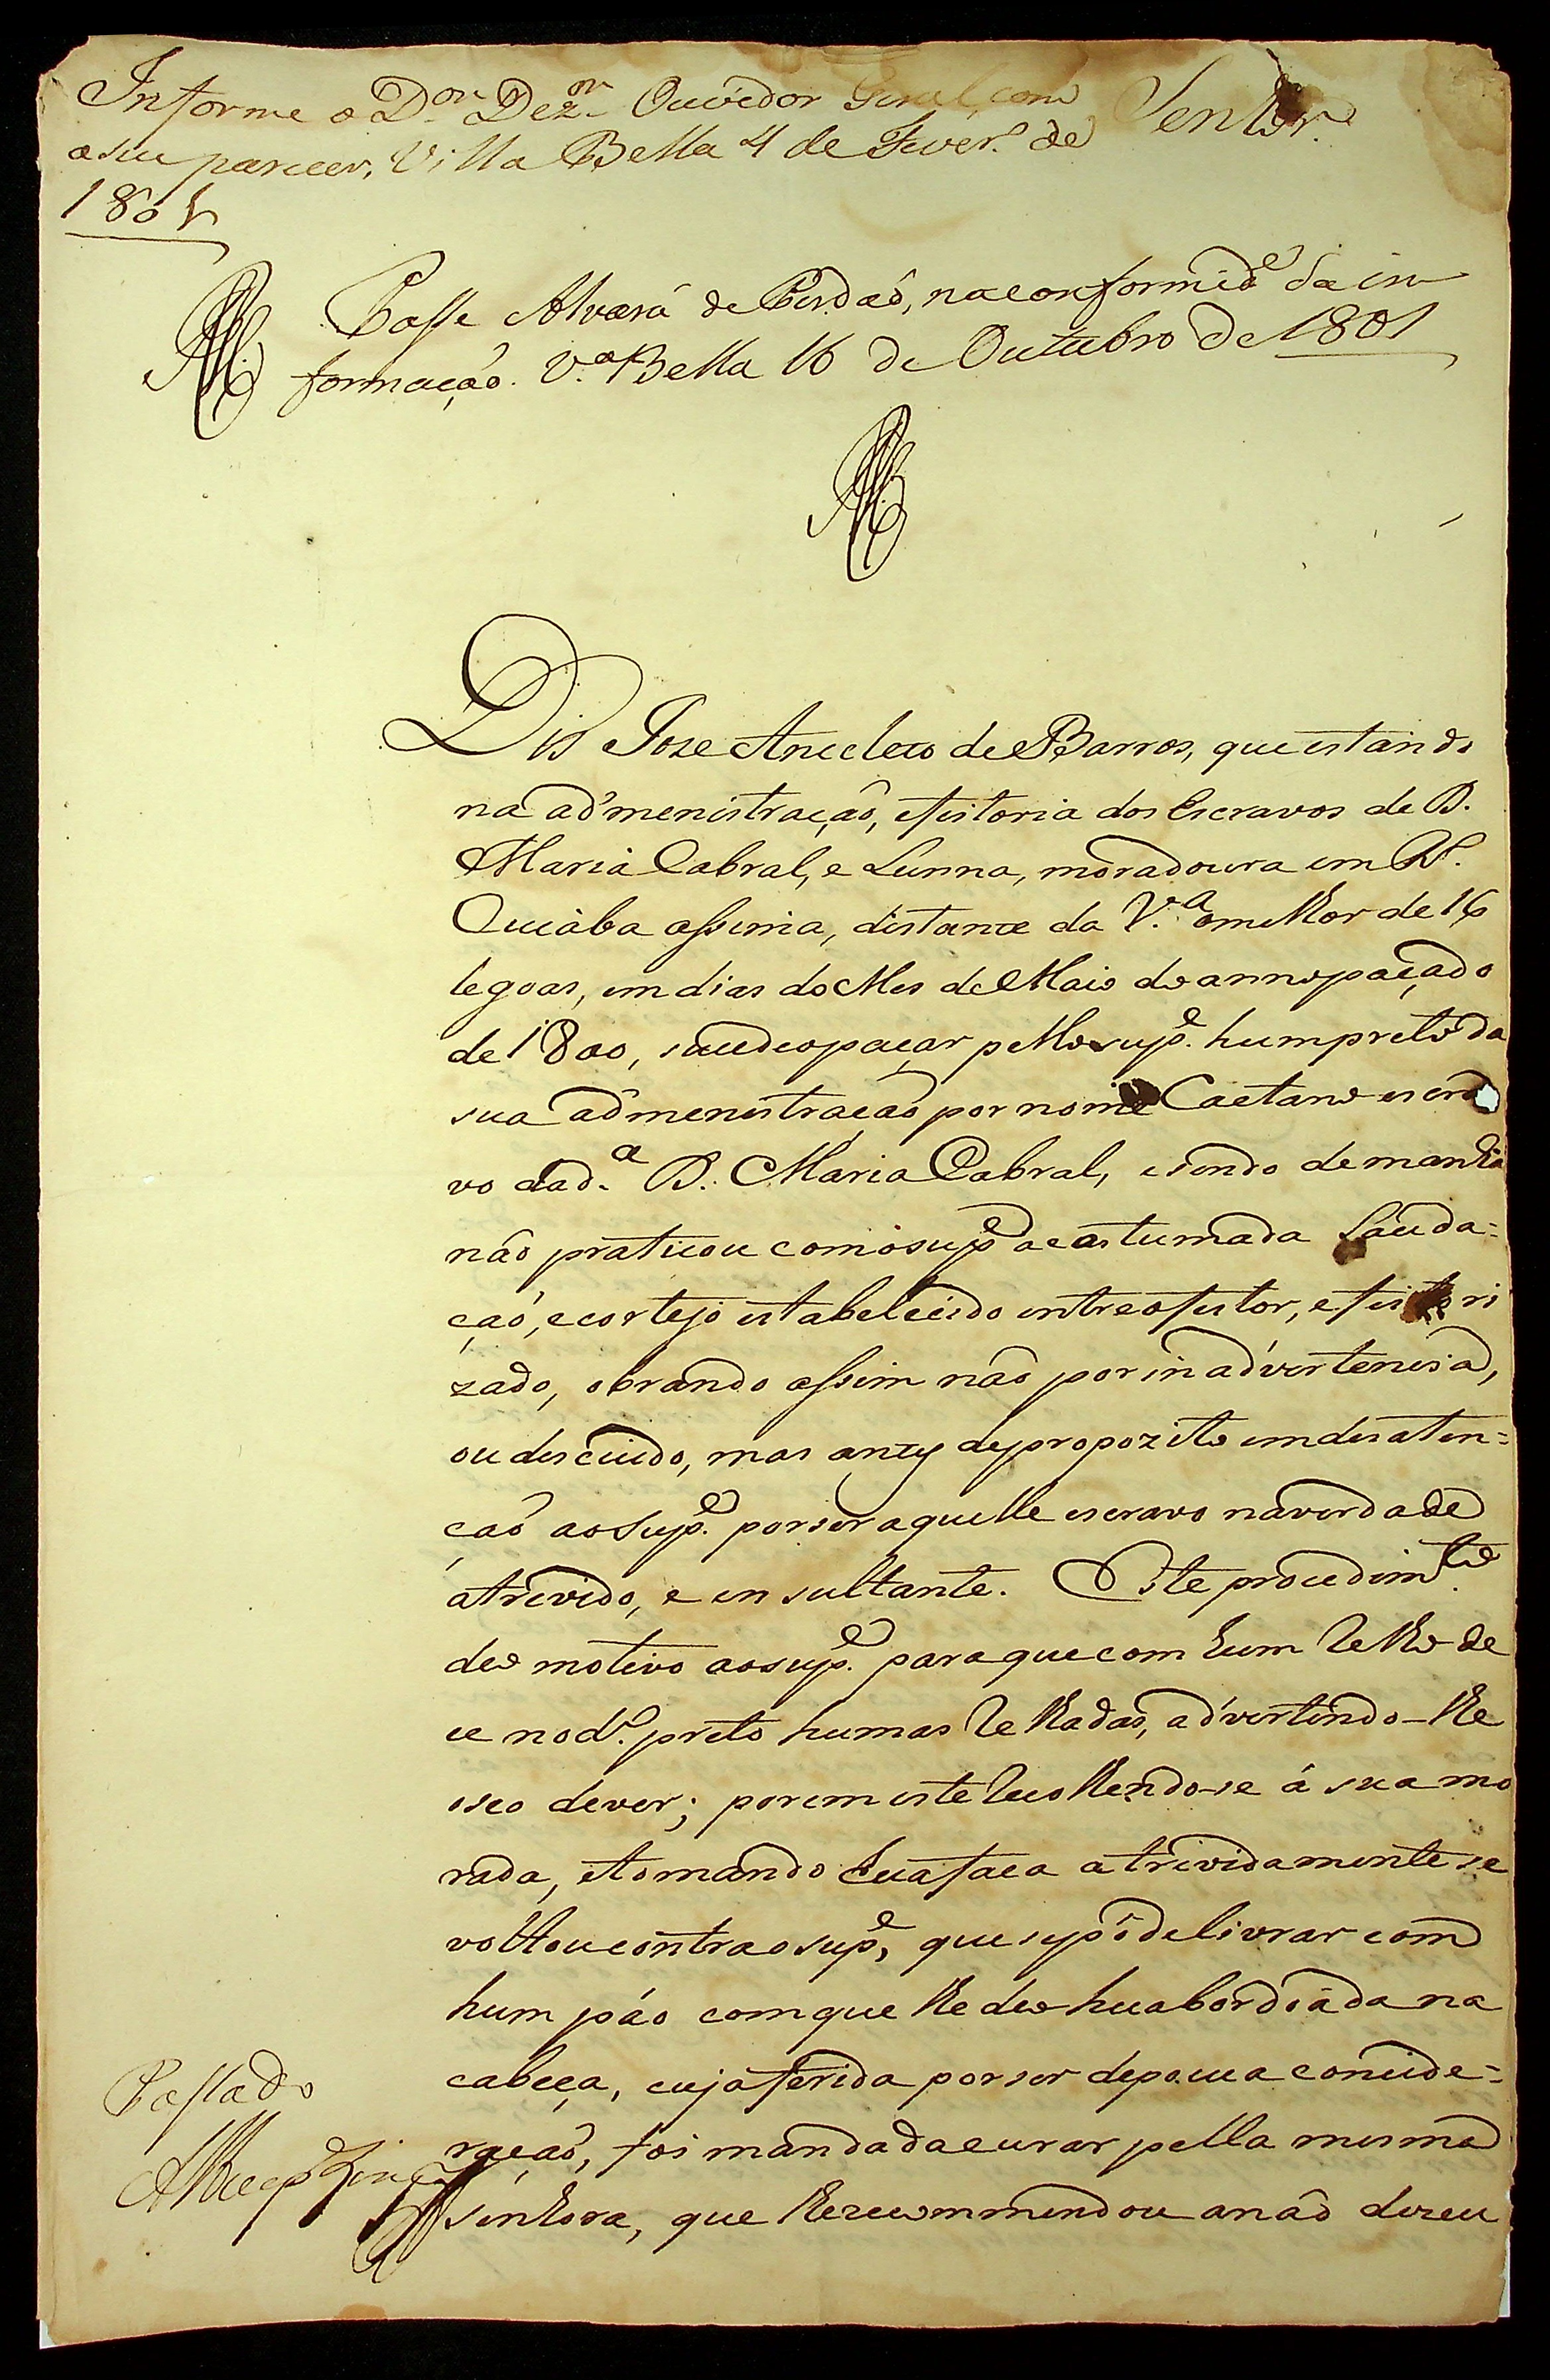 Informe o D.or Dez.or Ouvidor Geral, com
o seu parecer, Villa Bella 4 de Fever.o de
1801
Senhor.
Passe Alvará de Perdaõ, na conformid.e da in
formaçaõ. V.a Bella 16 de Outubro de 1801
Diz Joze Anecleto de Barros, que estando
na administraçaõ, e feitoria dos Escravos de D.
Maria Cabral, e Lunna, moradoura em
Cuiaba assima, distante da V.a de 16
legoas, em dias do Mes de Maio do anno paçado
de 1800, sucedeo paçar pello sup.e hum preto da
sua administraçaõ por nome Caetano escra
vo da d.a D. Maria Cabral, e sendo de manhã
não praticou com o sup.e a costumada Sauda=
çaõ, e cortejo estabelecido entre o feitor, e feitori
zado, obrando assim não por inadvertencia,
ou descuido, mas antes de propozito em desaten=
çaõ ao Sup.e por ser aquelle escravo na verdade
atrevido, e insultante. Este procedim.to
deo motivo ao sup.e para que com hum relho de
ce no d.o preto humas relhadas, advertindo-lhe
o seo dever; porem este recolhendo-se á sua mo
rada, e tomando hua faca atrividamente se
voltou contra o sup.e, que se pôde livrar com
hum páo com que lhe deo hua bordoada na
cabeça, cuja ferida por ser de pouca concide=
raçaõ, foi mandada curar pella mesma
senhora, que lhe recommendou a não deceu
Passado